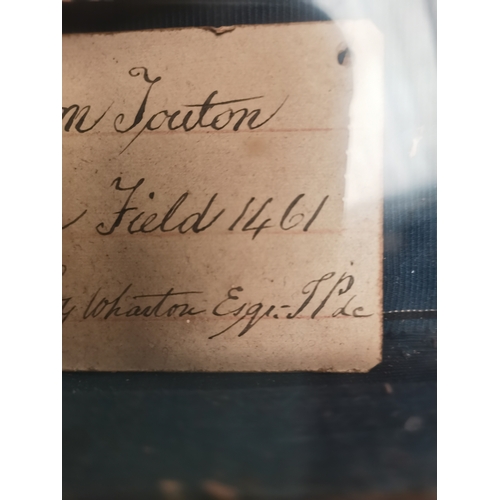 on Touton
Field 1461
y Wharton Esqr. JP &c